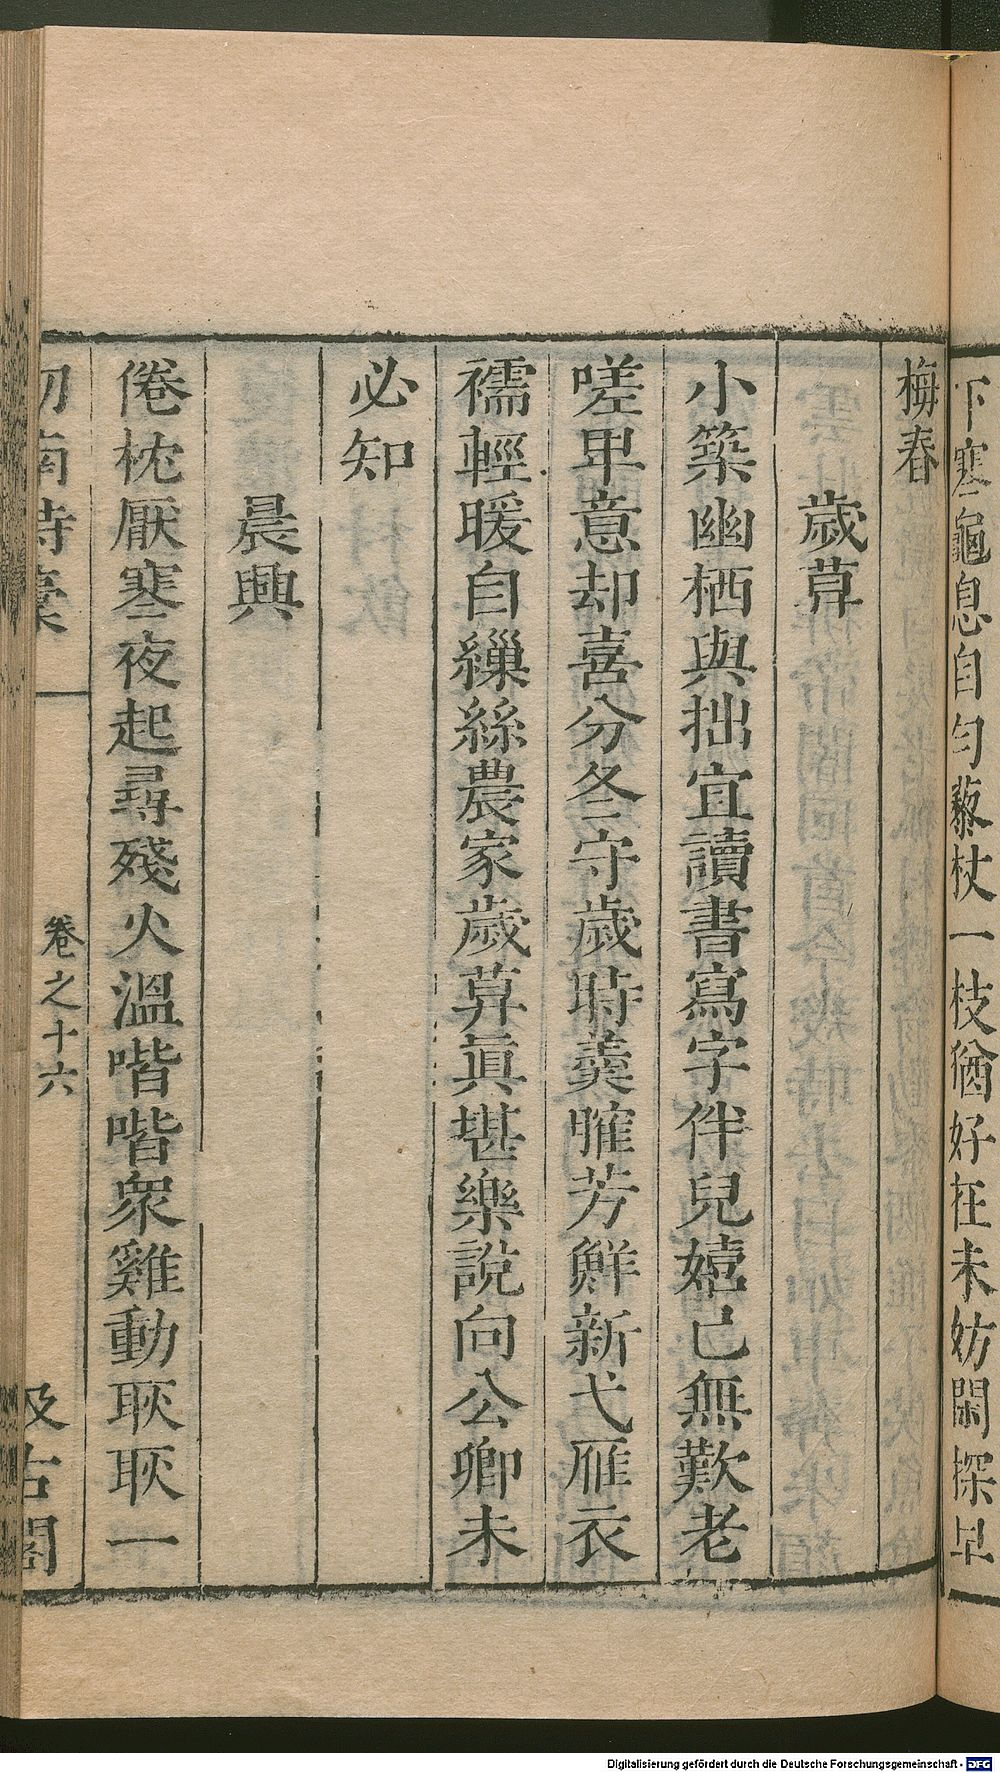 下寒龜息自勻藜杖一枝猶好在未妨閑探早
梅春
歲算
小築幽栖與拙宜讀書寫字伴兒嬉已無歎老
嗟卑意却喜分冬守歲時羹臛芳鮮新弋雁衣
襦輕暖自繅絲農家歲算眞堪樂說向公卿未
必知
晨興
倦枕厭寒夜起尋殘火溫喈喈衆雞動耿耿一
劒南詩稾
卷之十六
汲古閣
Digitalisierung gefördert durch die Deutsche Forschungsgemeinschaft - DFG